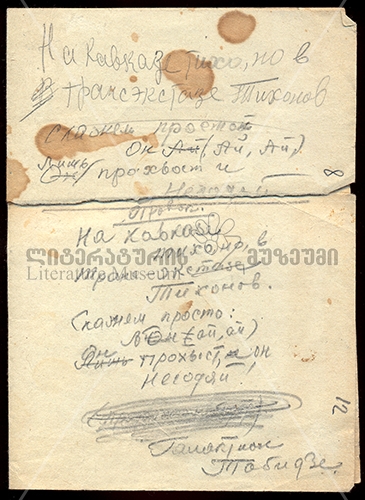 На Кавказе тихо, но в
В трансэкстазе Тихонов
Скажем просто
Он Ай, (Ай, Ай,)
Лишь прохвост и
Негодяй
8
На Кавказе
тихо, но, в
транс экстазе
Тихонов.
ლიტერატურის მუზეუმი
Literature Museum
Скажем просто:
Он (ай, ай)
Лишь прохвост, и он
Негодяй!
12
Галактион
Табидзе.